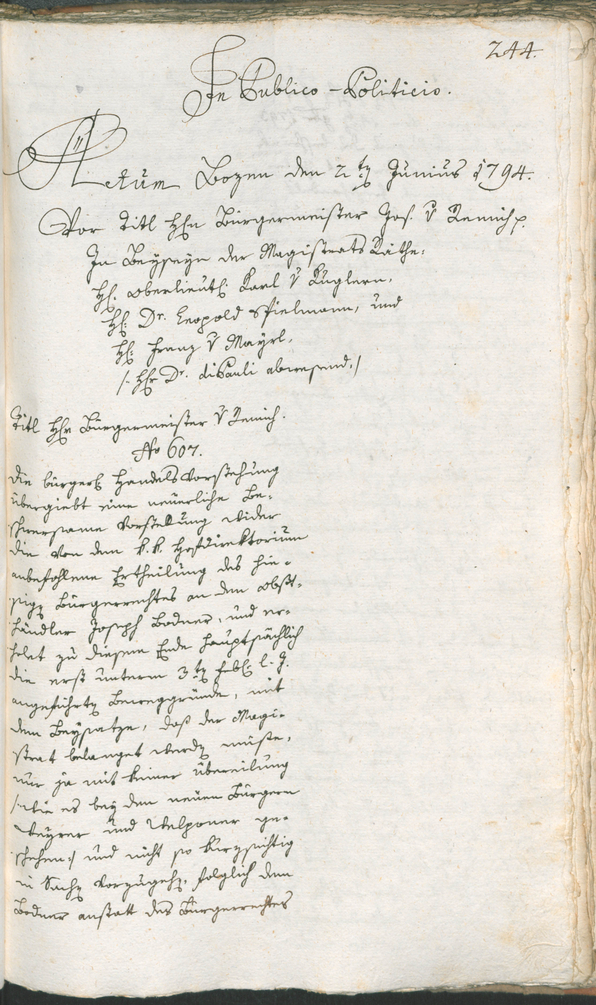 244.
In Publico-Politicio.
Actum Bozen den 2ten Junius 1794.
Vor Titl Hhn Bürgermeister Jos. v Remich p.
In Beyseyn der MagistratsRäthe:
Hl. Oberlieutl. Karl v Kuglern,
Hl. Dr. Leopold Spielmann, und
Hl. Franz v Mayrl.
/: Hhr Dr. diPauli abwesend. /
Titl Hhr Bürgermeister v Remich.
No 607.
Die bürgerl Handels Vorstehung
übergiebt eine neuerliche Be-
schwersame Vorstellung wider
die von dem k. k. Hofdirektorium
anbefohlene Ertheilung des hie-
sigen Bürgerrechtes an den Obst-
händler Joseph Bodner, und er-
holet zu diesem Ende hauptsächlich
die erst unterm 3ten l. J.
angeführten Beweggründe, mit
dem Beysatze, daß der Magi-
strat belanget werden müste,
nur ja mit keiner Übereilung
/: wie es bey den neuen Bürgern
Mayrer und Welponer ge-
schehen :/ und nicht so kurzsichtig
in Sachen vorzugehen, folglich dem
Bodner anstatt des Bürgerrechtes